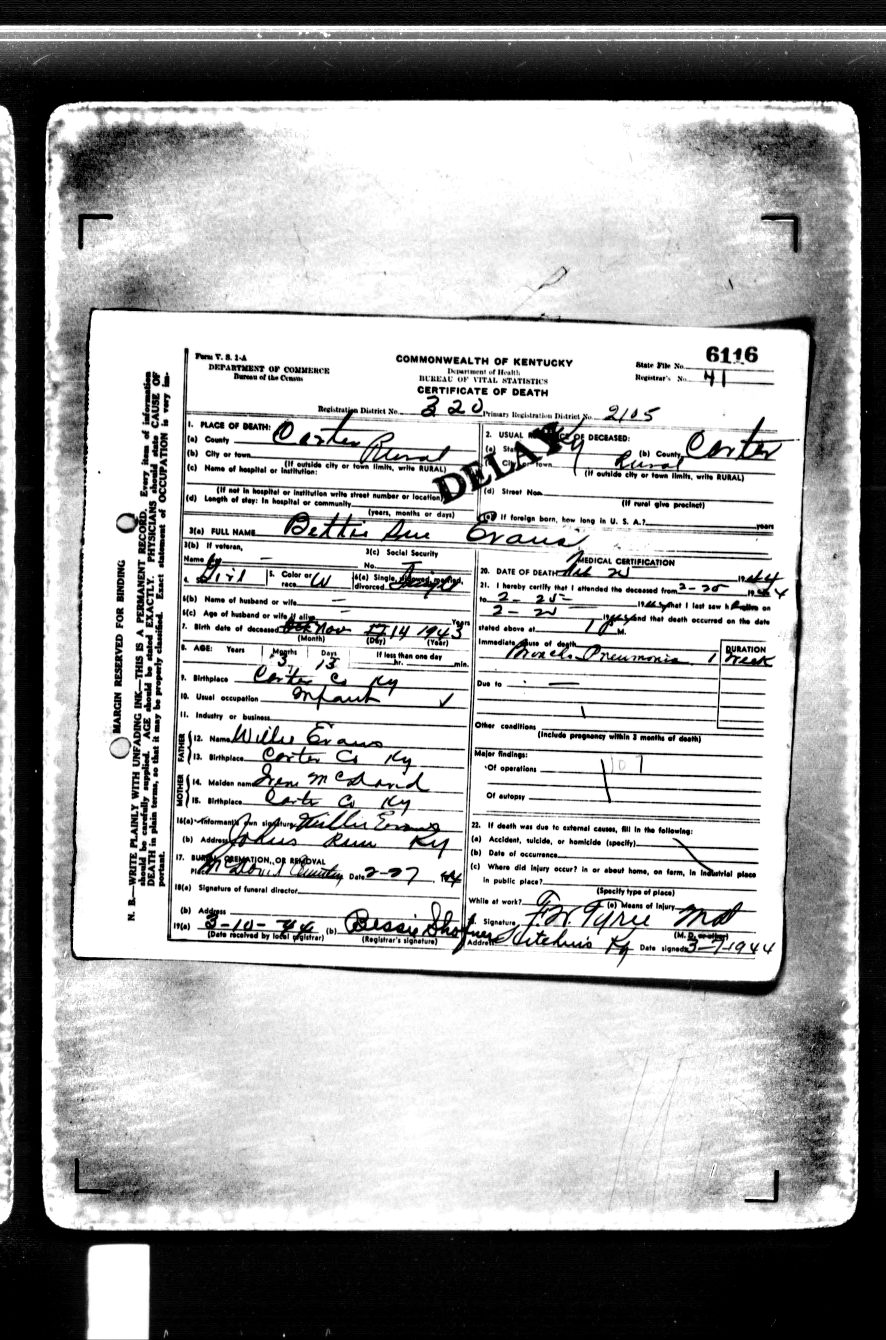 Form V. S. 1-A
DEPARTMENT OF COMMERCE
Bureau of the Census
COMMONWEALTH OF KENTUCKY
Department of Health
BUREAU OF VITAL STATISTICS
CERTIFICATE OF DEATH
State File No. 6116
Registrar's No. 41
Registration District No. 320 Primary Registration District No. 2105
DELAY
1. PLACE OF DEATH:
(a) County Carter
(b) City or town Rural
(If outside city or town limits, write RURAL)
(c) Name of hospital or institution:
(If not in hospital or institution write street number or location)
(d) Length of stay: In hospital or community
(years, months or days)
2. USUAL RESIDENCE OF DECEASED:
(a) State Ky (b) County Carter
(c) City or town Rural
(If outside city or town limits, write RURAL)
(d) Street No.
(If rural give precinct)
(e) If foreign born, how long in U. S. A.? years
3(a) FULL NAME Bettie Sue Evans
3(b) If veteran,
Name
3(c) Social Security
No.
4. Girl 5. Color or race W 6(a) Single, widowed, married, divorced Single
6(b) Name of husband or wife
6(c) Age of husband or wife if alive Years
7. Birth date of deceased Nov 14 1943
(Month) (Day) (Year)
8. AGE: Years Months 3 Days 13 If less than one day hr. min.
9. Birthplace Carter Co Ky
10. Usual occupation Infant ✓
11. Industry or business
FATHER
12. Name Willie Evans
13. Birthplace Carter Co Ky
MOTHER
14. Maiden name Irene McDavid
15. Birthplace Carter Co Ky
16(a) Informant's own signature Willie Evans
(b) Address Johns Run Ky
17. BURIAL, CREMATION, OR REMOVAL
Place McDavid Cemetery Date 2-27, 1944
18(a) Signature of funeral director
(b) Address
19(a) 3-10-44 (b) Bessie Shaffner
(Date received by local registrar) (Registrar's signature)
MEDICAL CERTIFICATION
20. DATE OF DEATH 1944
21. I hereby certify that I attended the deceased from 2-25 1944
to 2-25 1944, that I last saw h alive on
2-25 1944 and that death occurred on the date
stated above at M.
Immediate cause of death
Broncho Pneumonia
DURATION
1 week
Due to
Other conditions
(Include pregnancy within 3 months of death)
Major findings:
Of operations
107
Of autopsy
22. If death was due to external causes, fill in the following:
(a) Accident, suicide, or homicide (specify)
(b) Date of occurrence
(c) Where did injury occur? in or about home, on farm, in industrial place
in public place?
(Specify type of place)
While at work? (e) Means of injury
Signature F W Tyree Md
(M. D. or other)
Address Hitchins Ky Date signed 3-7-1944
MARGIN RESERVED FOR BINDING
N. B.—WRITE PLAINLY WITH UNFADING INK—THIS IS A PERMANENT RECORD. Every item of information
should be carefully supplied. AGE should be stated EXACTLY. PHYSICIANS should state CAUSE OF
DEATH in plain terms, so that it may be properly classified. Exact statement of OCCUPATION is very im-
portant.